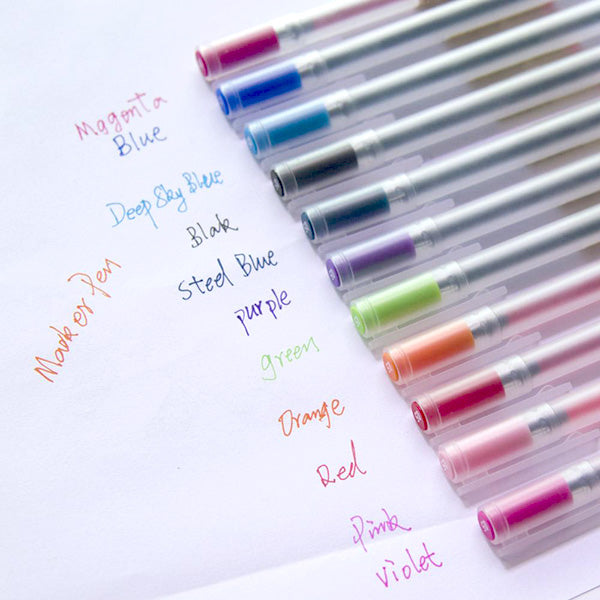 Magenta
Blue
Deep Sky Blue
Blak
Steel Blue
purple
green
Orange
Red
Pink
violet
Marker Pen